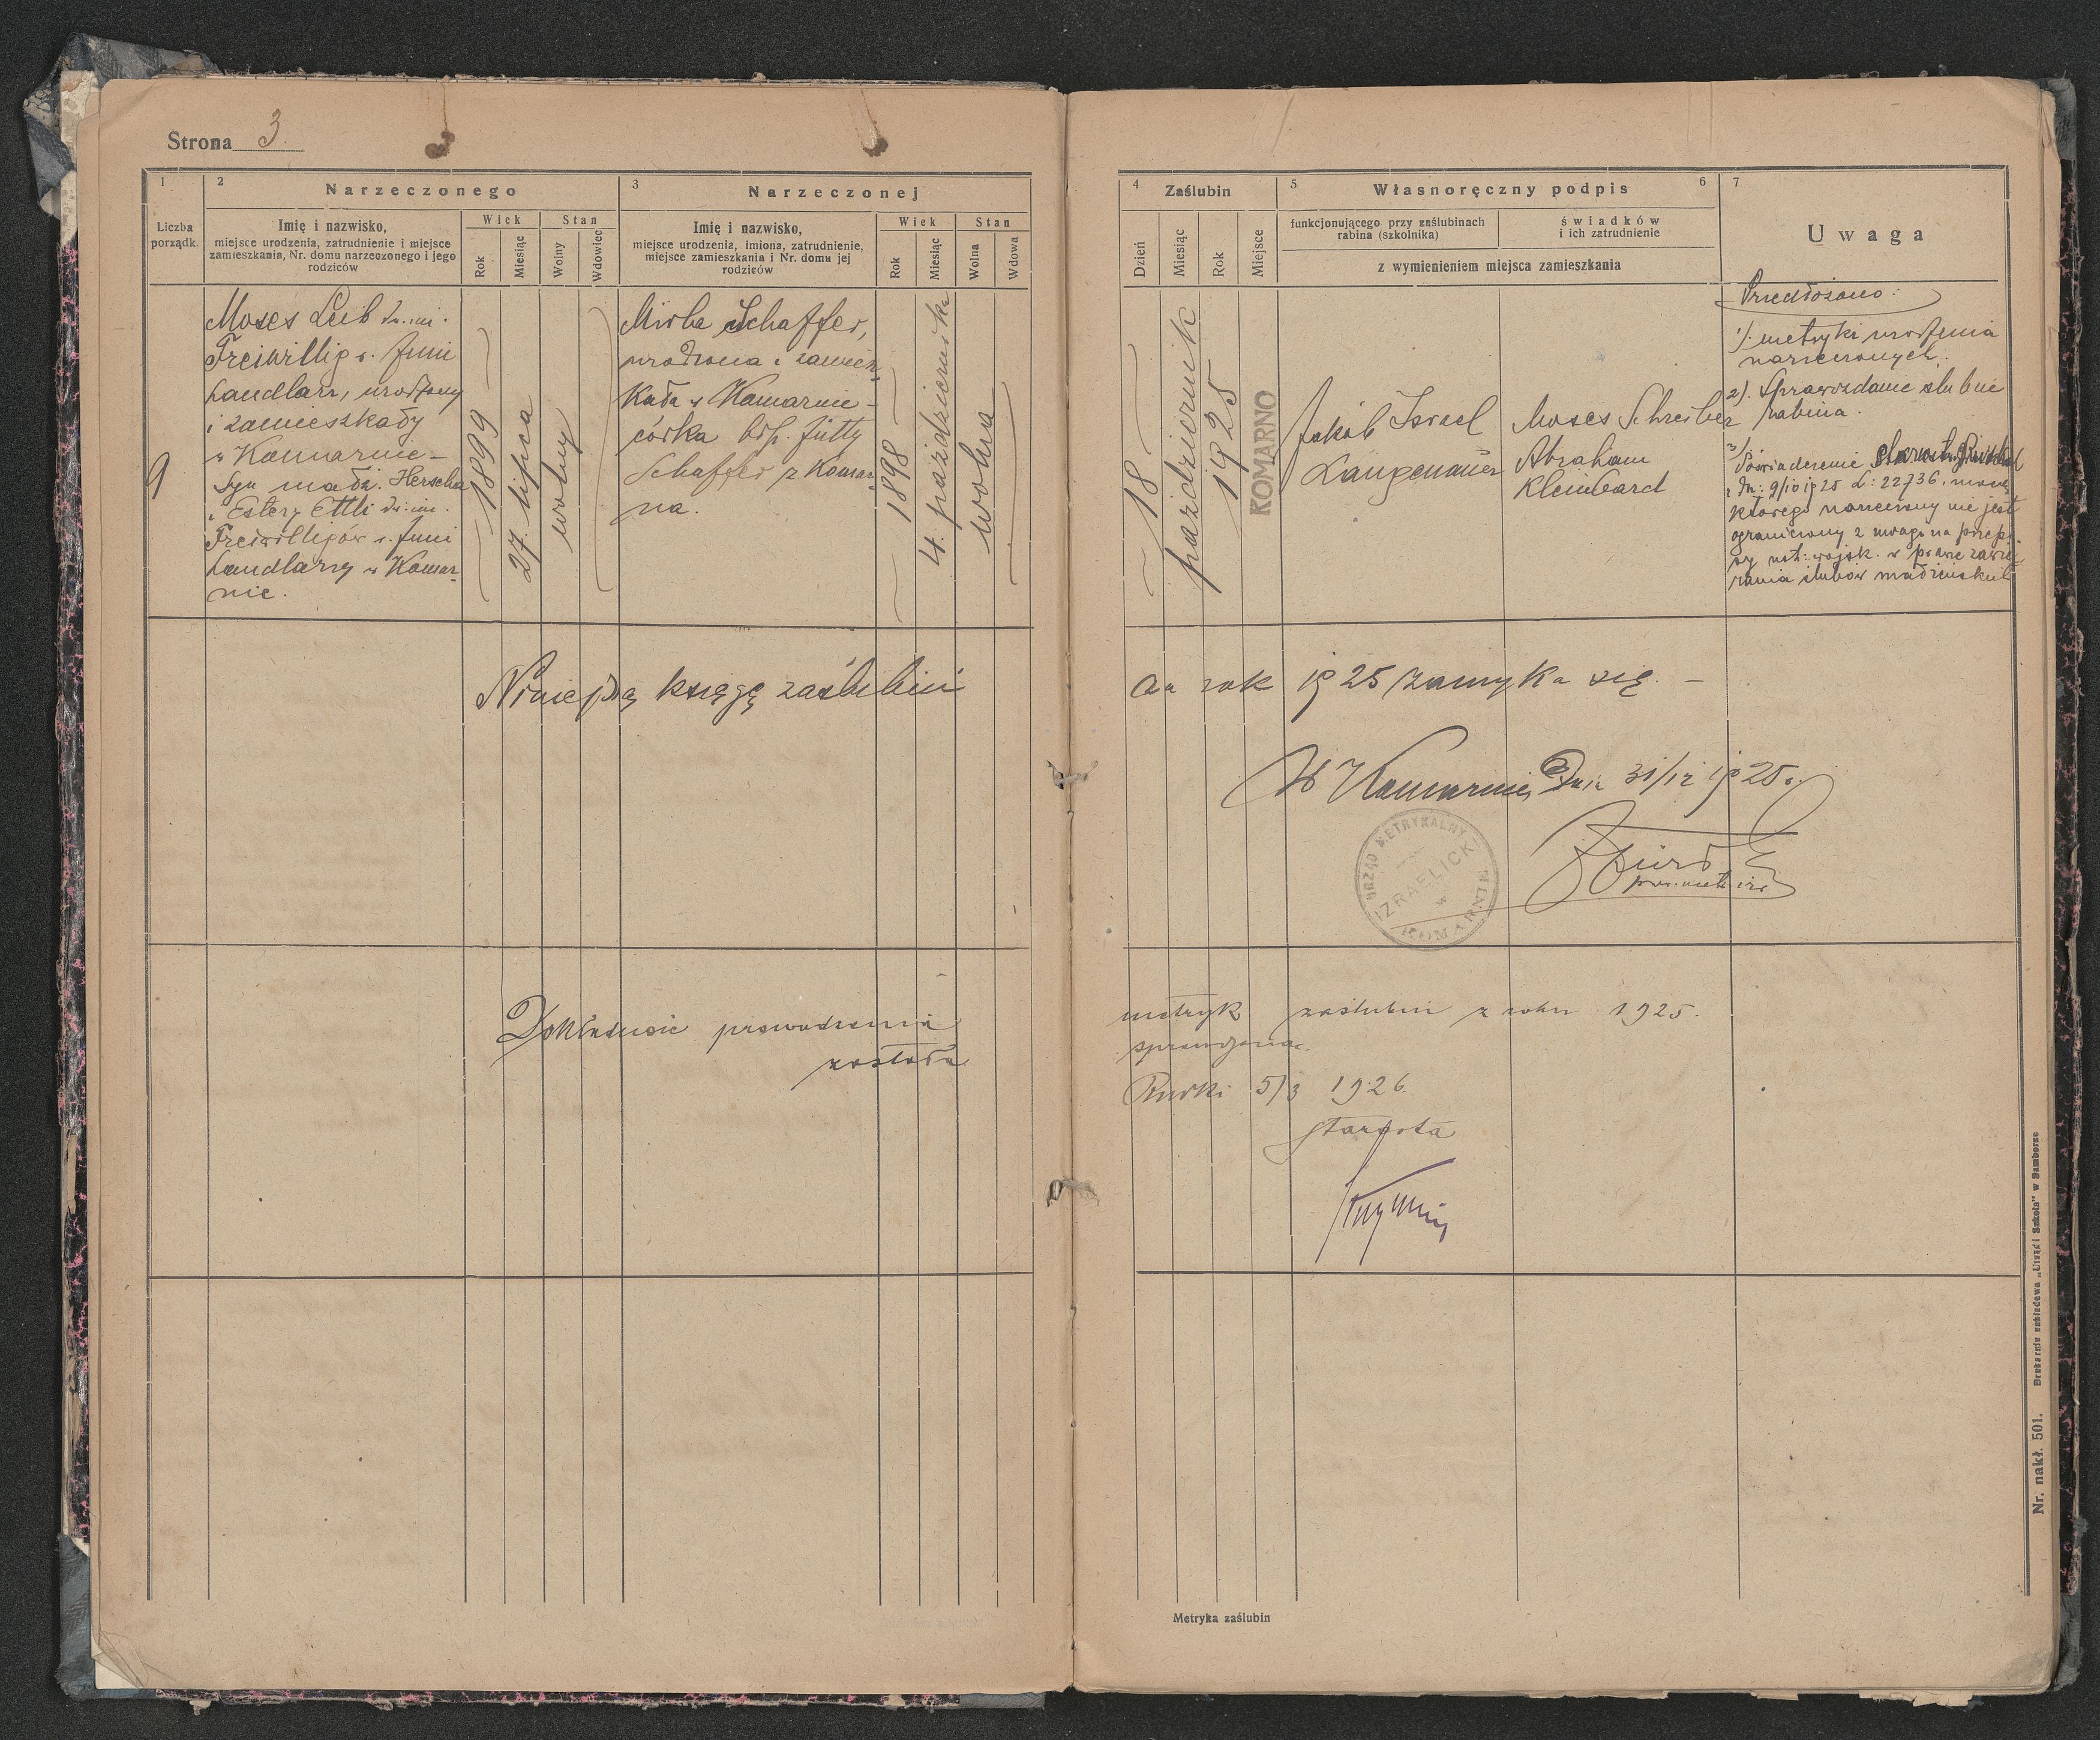 Strona 3.
1
Liczba
porządk.
2
Narzeczonego
Imię i nazwisko,
miejsce urodzenia, zatrudnienie i miejsce
zamieszkania, Nr. domu narzeczonego i jego
rodziców
Wiek
Rok
Miesiąc
Stan
Wolny
Wdowiec
3
Narzeczonej
Imię i nazwisko,
miejsce urodzenia, imiona, zatrudnienie,
miejsce zamieszkania i Nr. domu jej
rodziców
Wiek
Rok
Miesiąc
Stan
Wolna
Wdowa
4
Zaślubin
Dzień
Miesiąc
Rok
Miejsce
5
Własnoręczny podpis
6
funkcjonującego przy zaślubinach
rabina (szkolnika)
świadków
i ich zatrudnienie
z wymienieniem miejsca zamieszkania
7
Uwaga
9
Moses Leib
Freiwillig
handlarz, urodzony
i zamieszkały
w Komarnie -
syn małż. Herscha
i Estery Ettli
Freiwilligów
handlarzy w Komar-
nie.
1899
27. lipca
wolny
Mirla Schaffer,
urodzona i zamiesz-
kała w Komarnie -
córka Jütty
Schaffer z Komar-
na.
1898
4. października
wolna
18
październik
1925
KOMARNO
Jakób Israel
Langenauer
Moses Schreiber
Abraham
Kleinbard
Przedłożono:
1). metryki urodzenia
narzeczonych.
2). Sprawozdanie ślubne
rabina.
3/ Poświadczenie
z dn: 9/10 1925 L: 22736, mocą
którego narzeczony nie jest
ograniczony z uwagi na przepi-
sy ust. wojsk. w prawie zawie-
rania ślubów małżeńskich
Niniejszą księgę zaślubin
za rok 1925 zamyka się. -
W Komarnie, Dnia 31/12 1925 r.
URZĄD METRYKALNY
IZRAELICKI
w
KOMARNIE
Dokładność prowadzenia
metryk zaślubin z roku 1925.
została
sprawdzona.
Rudki 5/3 1926.
starosta
Metryka zaślubin
Nr. nakł. 501. Drukarnia nakładowa „Urząd i Szkoła" w Samborze